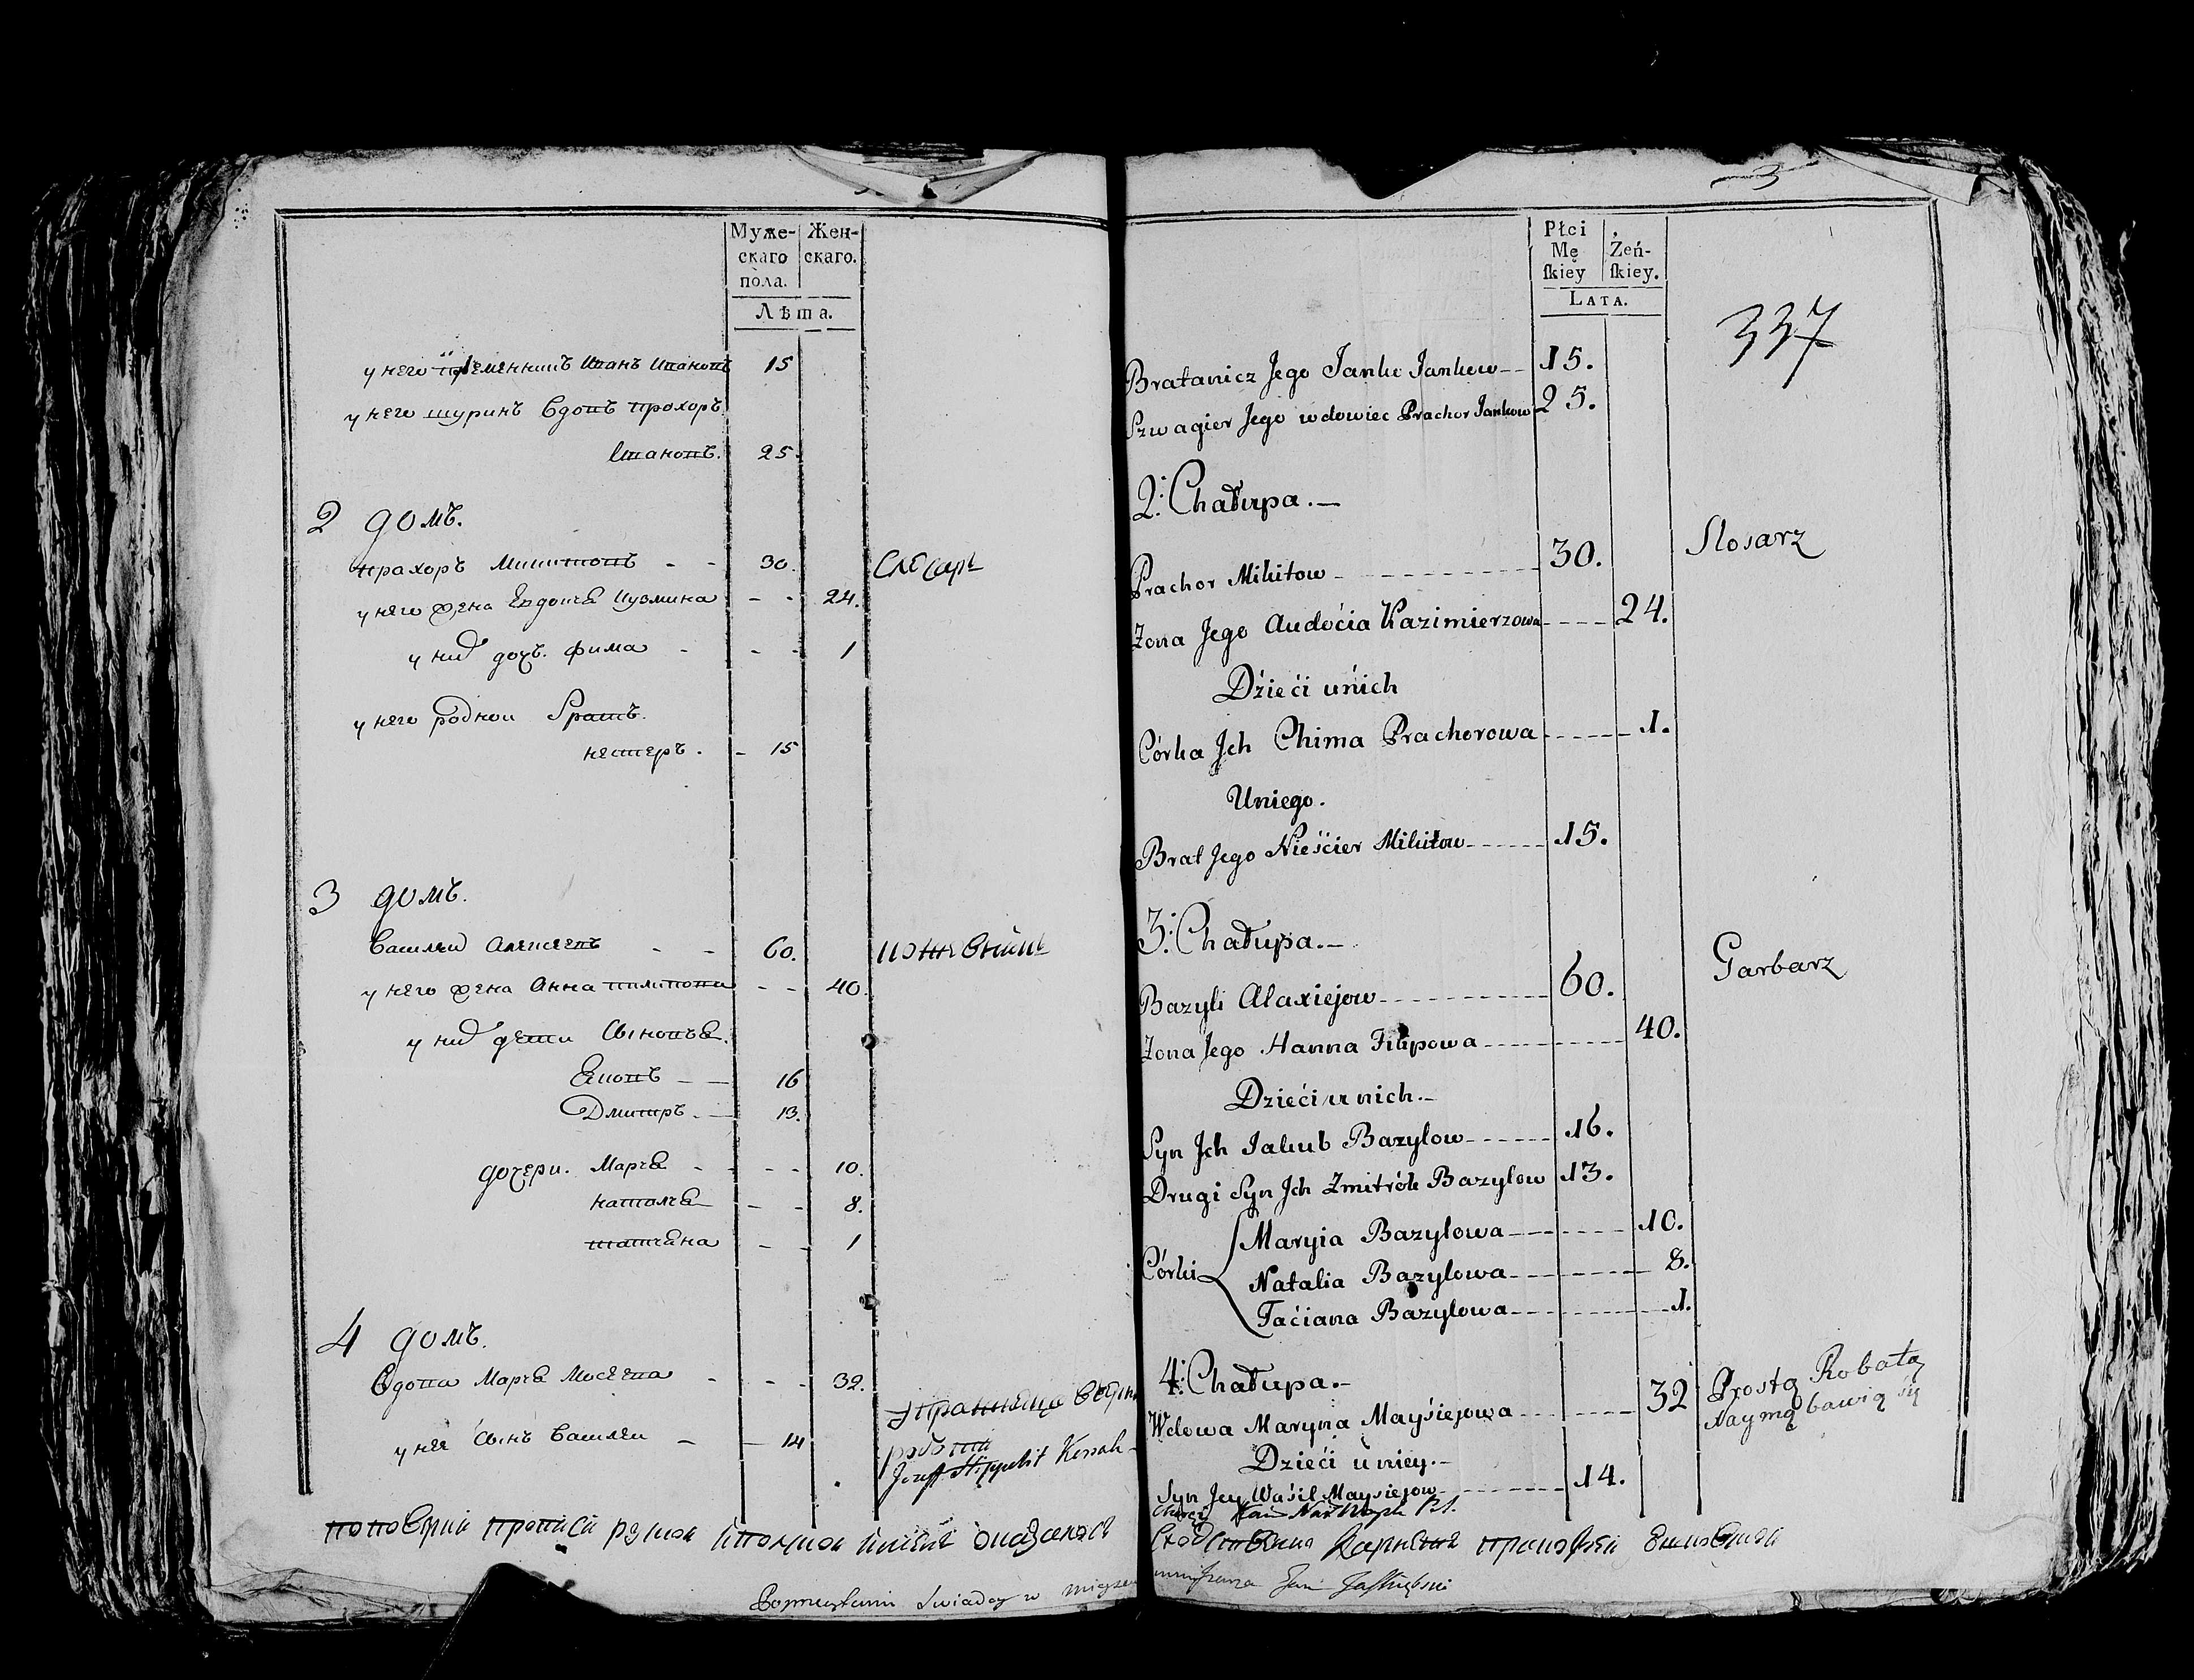 Муже-
скаго
пола.
Жен-
скаго.
Лѣта.
у него племенникъ Иванъ Ивановъ 15
у него шуринъ вдовъ прохоръ
Ивановъ. 25.
2 домъ.
прахоръ Микитовъ - - 30. Слесарь
у него жена Евдокѣа Кузмина - - 24.
у них дочь. фима - - - 1
у него родной братъ.
нестеръ. - 15
3 домъ.
Василей Алексеевъ - - 60. кожевникъ
у него жена Анна филипова - - 40.
у них дети Сыновьѣ.
Яковъ - - 16
Дмитръ. - 13.
дочери. Марѣа - - - 10.
наталѣа - - 8.
татѣана - - 1
4 домъ.
Вдова Марѣа Мосѣева - - - 32.
у нее Сынъ Василеи - - 14
Jozeff Hippolit Kossak
3
337
Płci
Mę
skiey
Żeń-
skiey.
Lata.
Bratanicz Jego Janko Jankow -- 15.
Szwagier Jego wdowiec Prachor Jankow 25.
2: Chałupa. -
Prachor Mikitow - - - 30. Slosarz
Żona Jego Audocia Kazimierzowa - - - 24.
Dźieći u nich
Córka Jch Chima Prachorowa - - - 1.
U niego.
Brat Jego Nieścier Mikitow - - - 15.
3: Chałupa. -
Bazyli Alaxiejow - - - 60. Garbarz
Żona Jego Hanna Filipowa - - - 40.
Dzieći u nich. -
Syn Jch Jakub Bazylow - - - 16.
Drugi Syn Jch Zmitrók Bazylow 13.
Córki
Maryia Bazylowa - - - 10.
Natalia Bazylowa - - - 8.
Taćiana Bazylowa - - - 1.
4: Chałupa. -
Wdowa Maryna Mayśiejowa - - - 32 Prostą Robotą
Naymą bawią się
Dzieći u niey. -
Syn Jey Waśil Maysiejow - - - 14.